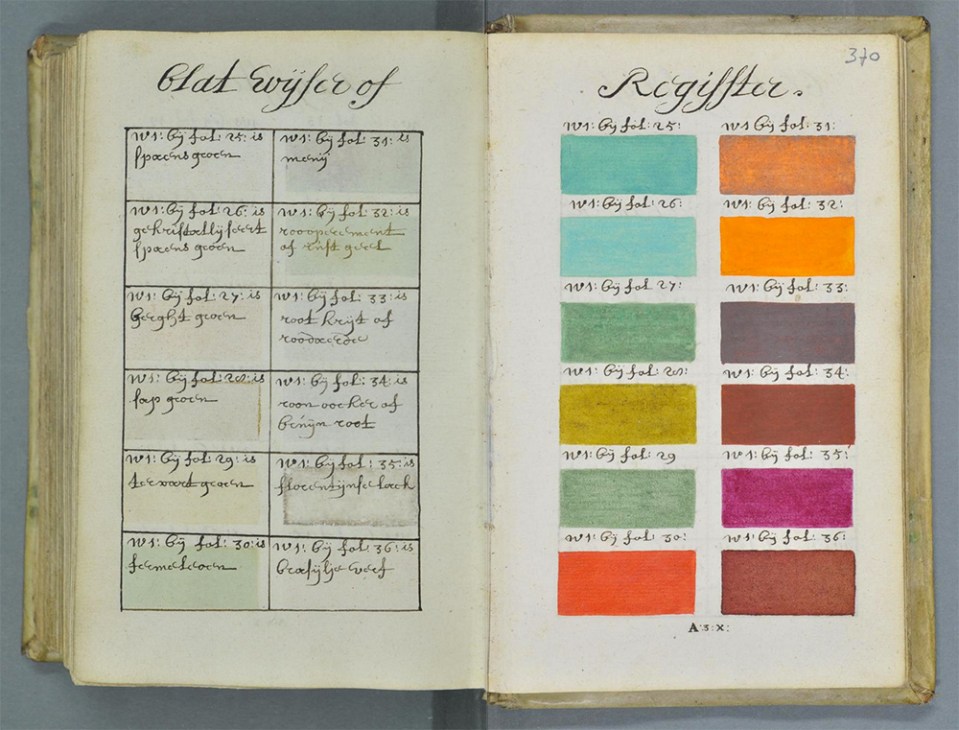 Blat wijser of
N1: bij fol: 25: is
spaens groen
N1: bij fol: 31: is
menij
N1: bij fol: 26: is
gekristallijseert
spaens groen
N1: bij fol: 32: is
roooperement
of rust geel
N1: bij fol: 27: is
Berght groen
N1: bij fol: 33: is
root krijt of
roodaerde
N1: bij fol: 28: is
sap groen
N1: bij fol: 34: is
roon oocker of
bruijn root
N1: bij fol: 29: is
terwart groen
N1: bij fol: 35: is
florentijnse lack
N1: bij fol: 30: is
fermeloen
N1: bij fol: 36: is
brasijlje verf
370
Regisster.
N1: bij fol: 25:
N1: bij fol: 31:
N1: bij fol: 26:
N1: bij fol: 32:
N1: bij fol: 27:
N1: bij fol: 33:
N1: bij fol: 28:
N1: bij fol: 34:
N1: bij fol: 29
N1: bij fol: 35:
N1: bij fol: 30:
N1: bij fol: 36:
A:3:X: